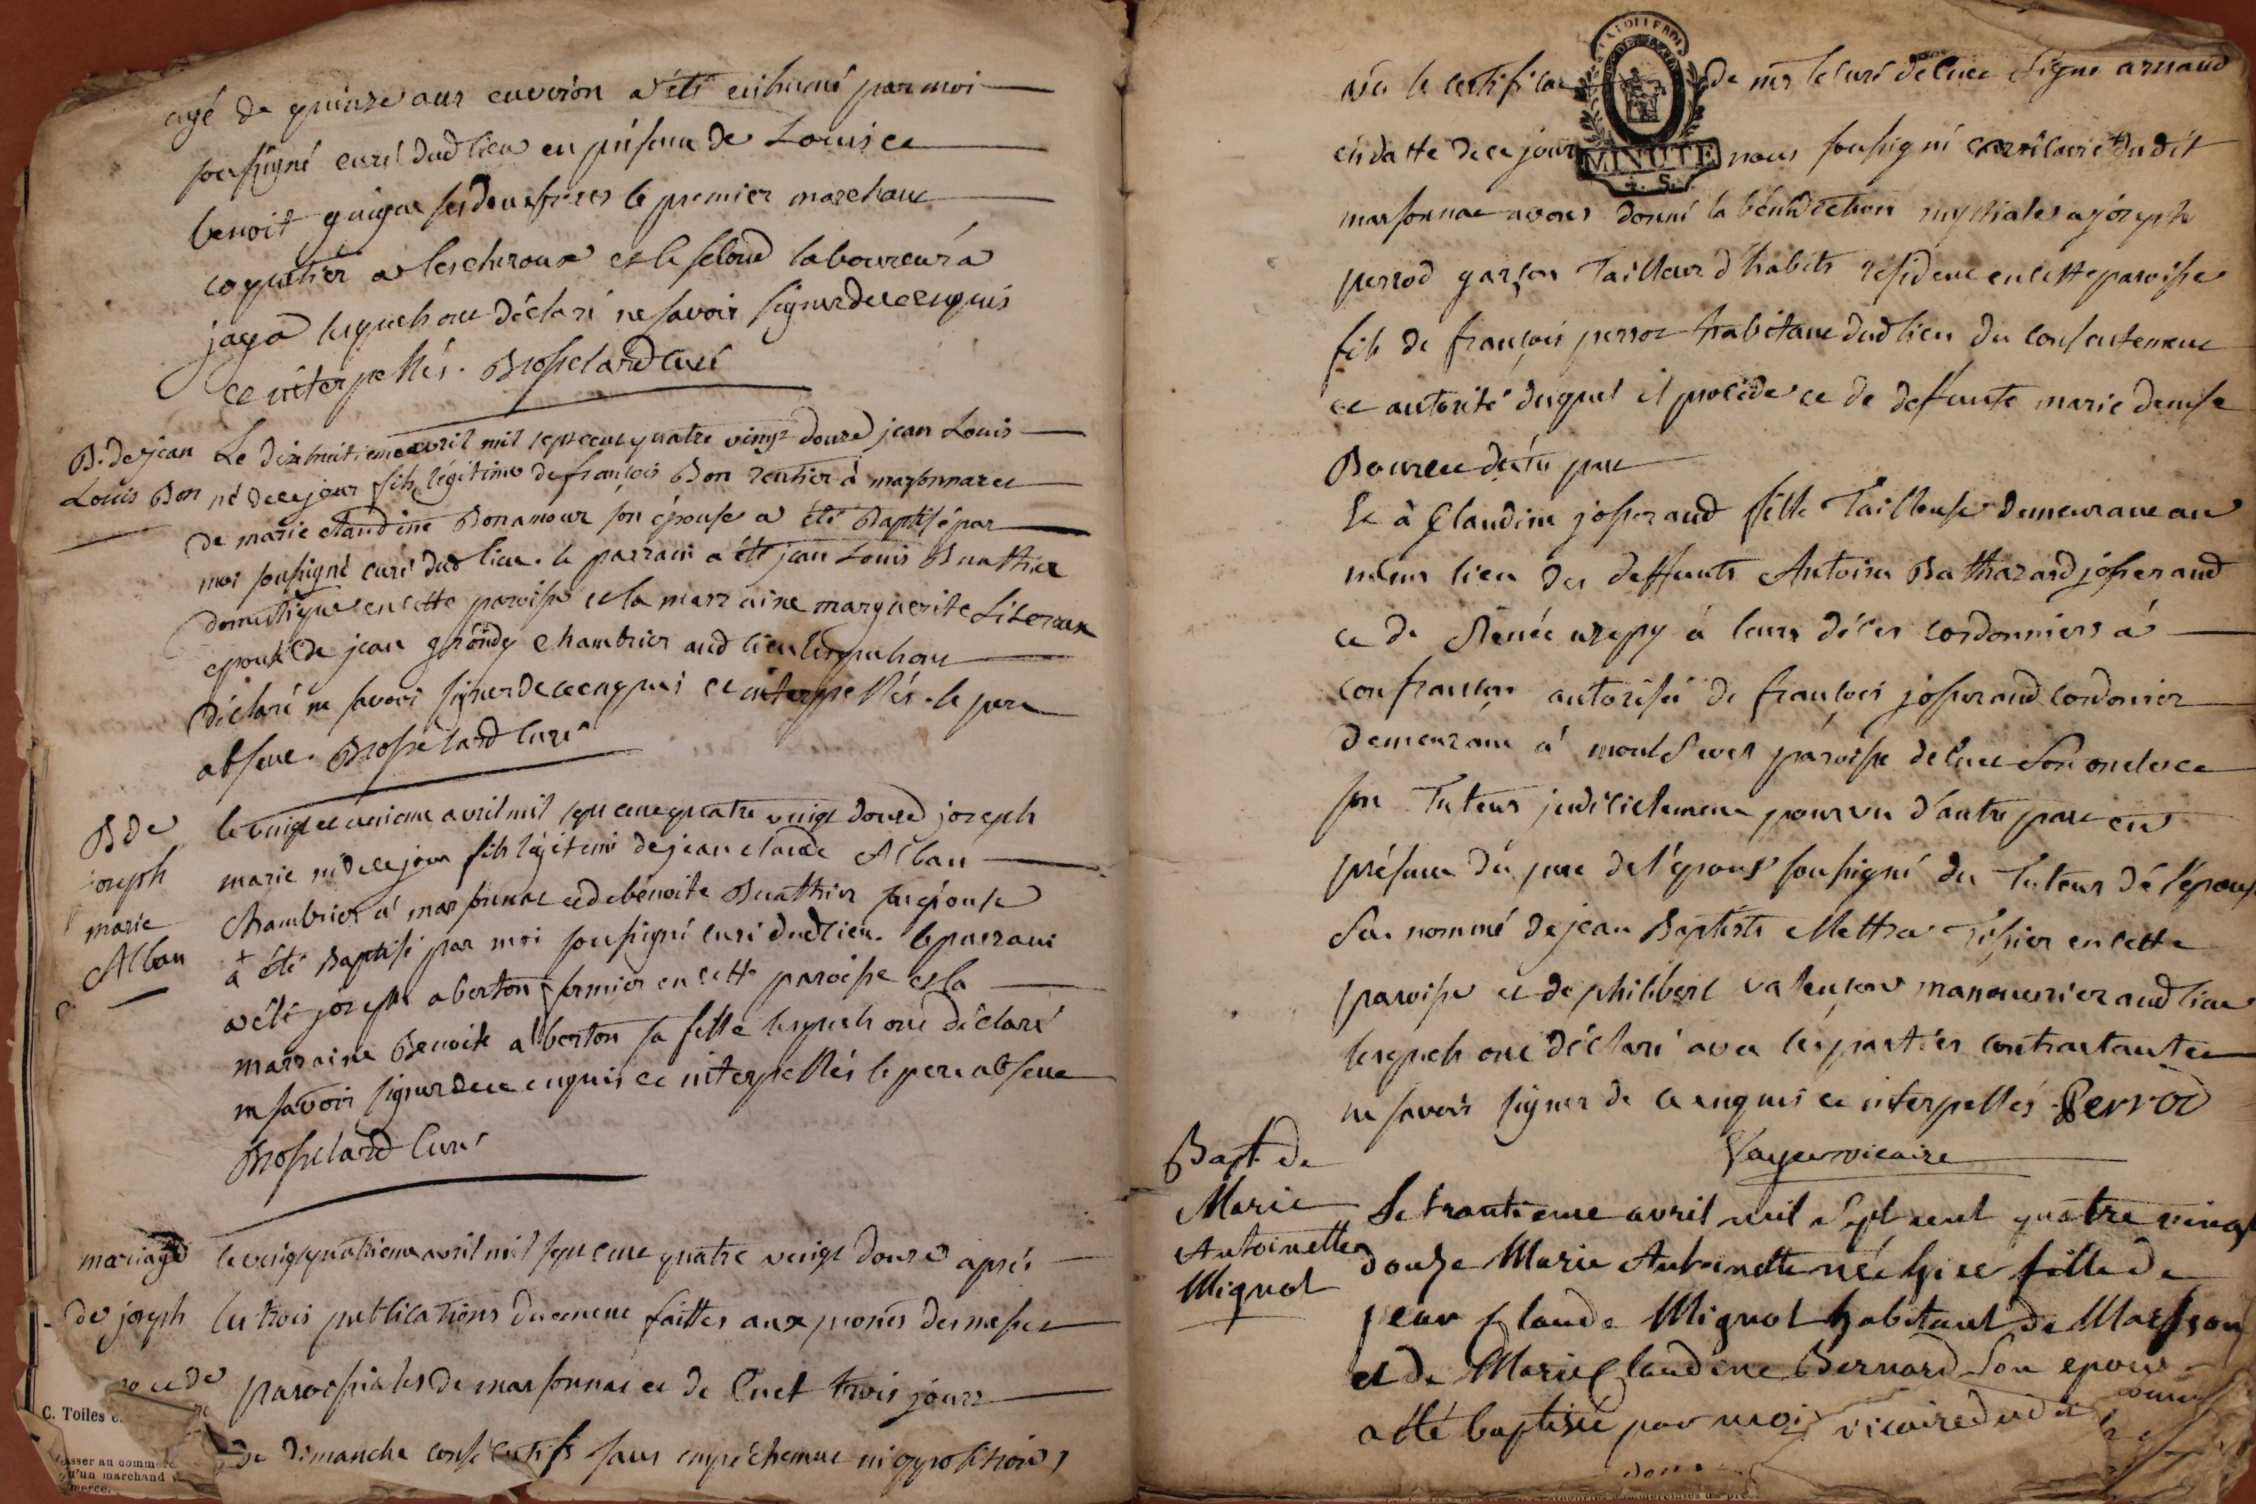 agé de quinze ans environ a été enhumé par moi
soussigné curé dudlieu en présence de Louis et
benoit guigue ses deux freres le premier marchant
coquetier a lescheroux et le second laboureur a
jaya lesquels ont déclaré ne savoir signer de ce enquis
et interpellés. Brosselard curé
B. de jean
Louis Bon
Le dixhuitieme avril mil sept cent quatre vingt douze jean Louis
né de ce jour fils légitime de françois Bon rentier à marsonnas et
de marie claudine Bonamour son épouse a été Baptisé par
moi soussigné curé dud lieu. le parrain a été jean Louis Buathier
domestique en cette paroisse et la marraine marguerite
epouse de jean gróndy chambrier aud lieu lesquels ont
déclaré ne savoir signer de ce enquis et interpellés. le pere
absent. Brosselard curé
B de
joseph
marie
Alban
le vingt et unieme avril mil sept cent quatre vingt douze joseph
marie né de ce jour fils légitime de jean claude Alban
chambrier à marsonnas et de benoite Buathier son épouse
a été Baptisé par moi soussigné curé dudlieu. le parrain
a été joseph alberton fermier en cette paroisse et la
marraine Benoite alberton sa fille lesquels ont déclaré
ne savoir signer de ce enquis et interpellés le pere absent
Brosselard curé
mariage
de joseph
le vingt quatrieme avril mil sept cent quatre vingt douze après
les trois publications duement faittes aux prones des messes
paroissiales de marsonnas et de Cuet trois jours
de dimanche consecutifs sans empechement ni opposition,
C. Toiles
asser au comme
d'un marchand
merce.
MINUTE
4. S.
vu le certificat de mr le curé de Cuet signé arnaud
en datte de ce jour nous soussigné vicaire dudit
marsonnas avons donné la bénédiction nuptiale a joseph
perrod garçon Tailleur d'habits résident en cette paroisse
fils de françois perrot habitant dud lieu du consentement
et autorité duquel il procède et de deffunte marie denise
Bouvet d'une part
Et à Claudine josserand fille Tailleuse demeurant au
même lieu des deffunts Antoine Balthazard josserand
et de Renée à leurs décès cordonniers à
confrançon autorisée de françois josserand cordonier
demeurant à paroisse de Cuet son oncle et
son Tuteur judiciellement pourvu d'autre part en
présence du pere de l'époux soussigné du Tuteur de l'épouse
Sus nommé de jean Baptiste Mettra Tissier en cette
paroisse et de philibert valençon manouvrier aud lieu
lesquels ont déclaré avec les parties contractantes
ne savoir signer de ce enquis et interpellés Perrod
vicaire
Bapt. de
Marie
Antoinette
Mignot
Le trantieme avril mil sept cent quatre vingt
douze Marie Antoinette née hier fille de
jean Claude Mignot habitant de Marsson
et de Marie Claudine Bernard son epouse
a été baptisée par moi vicaire dudit